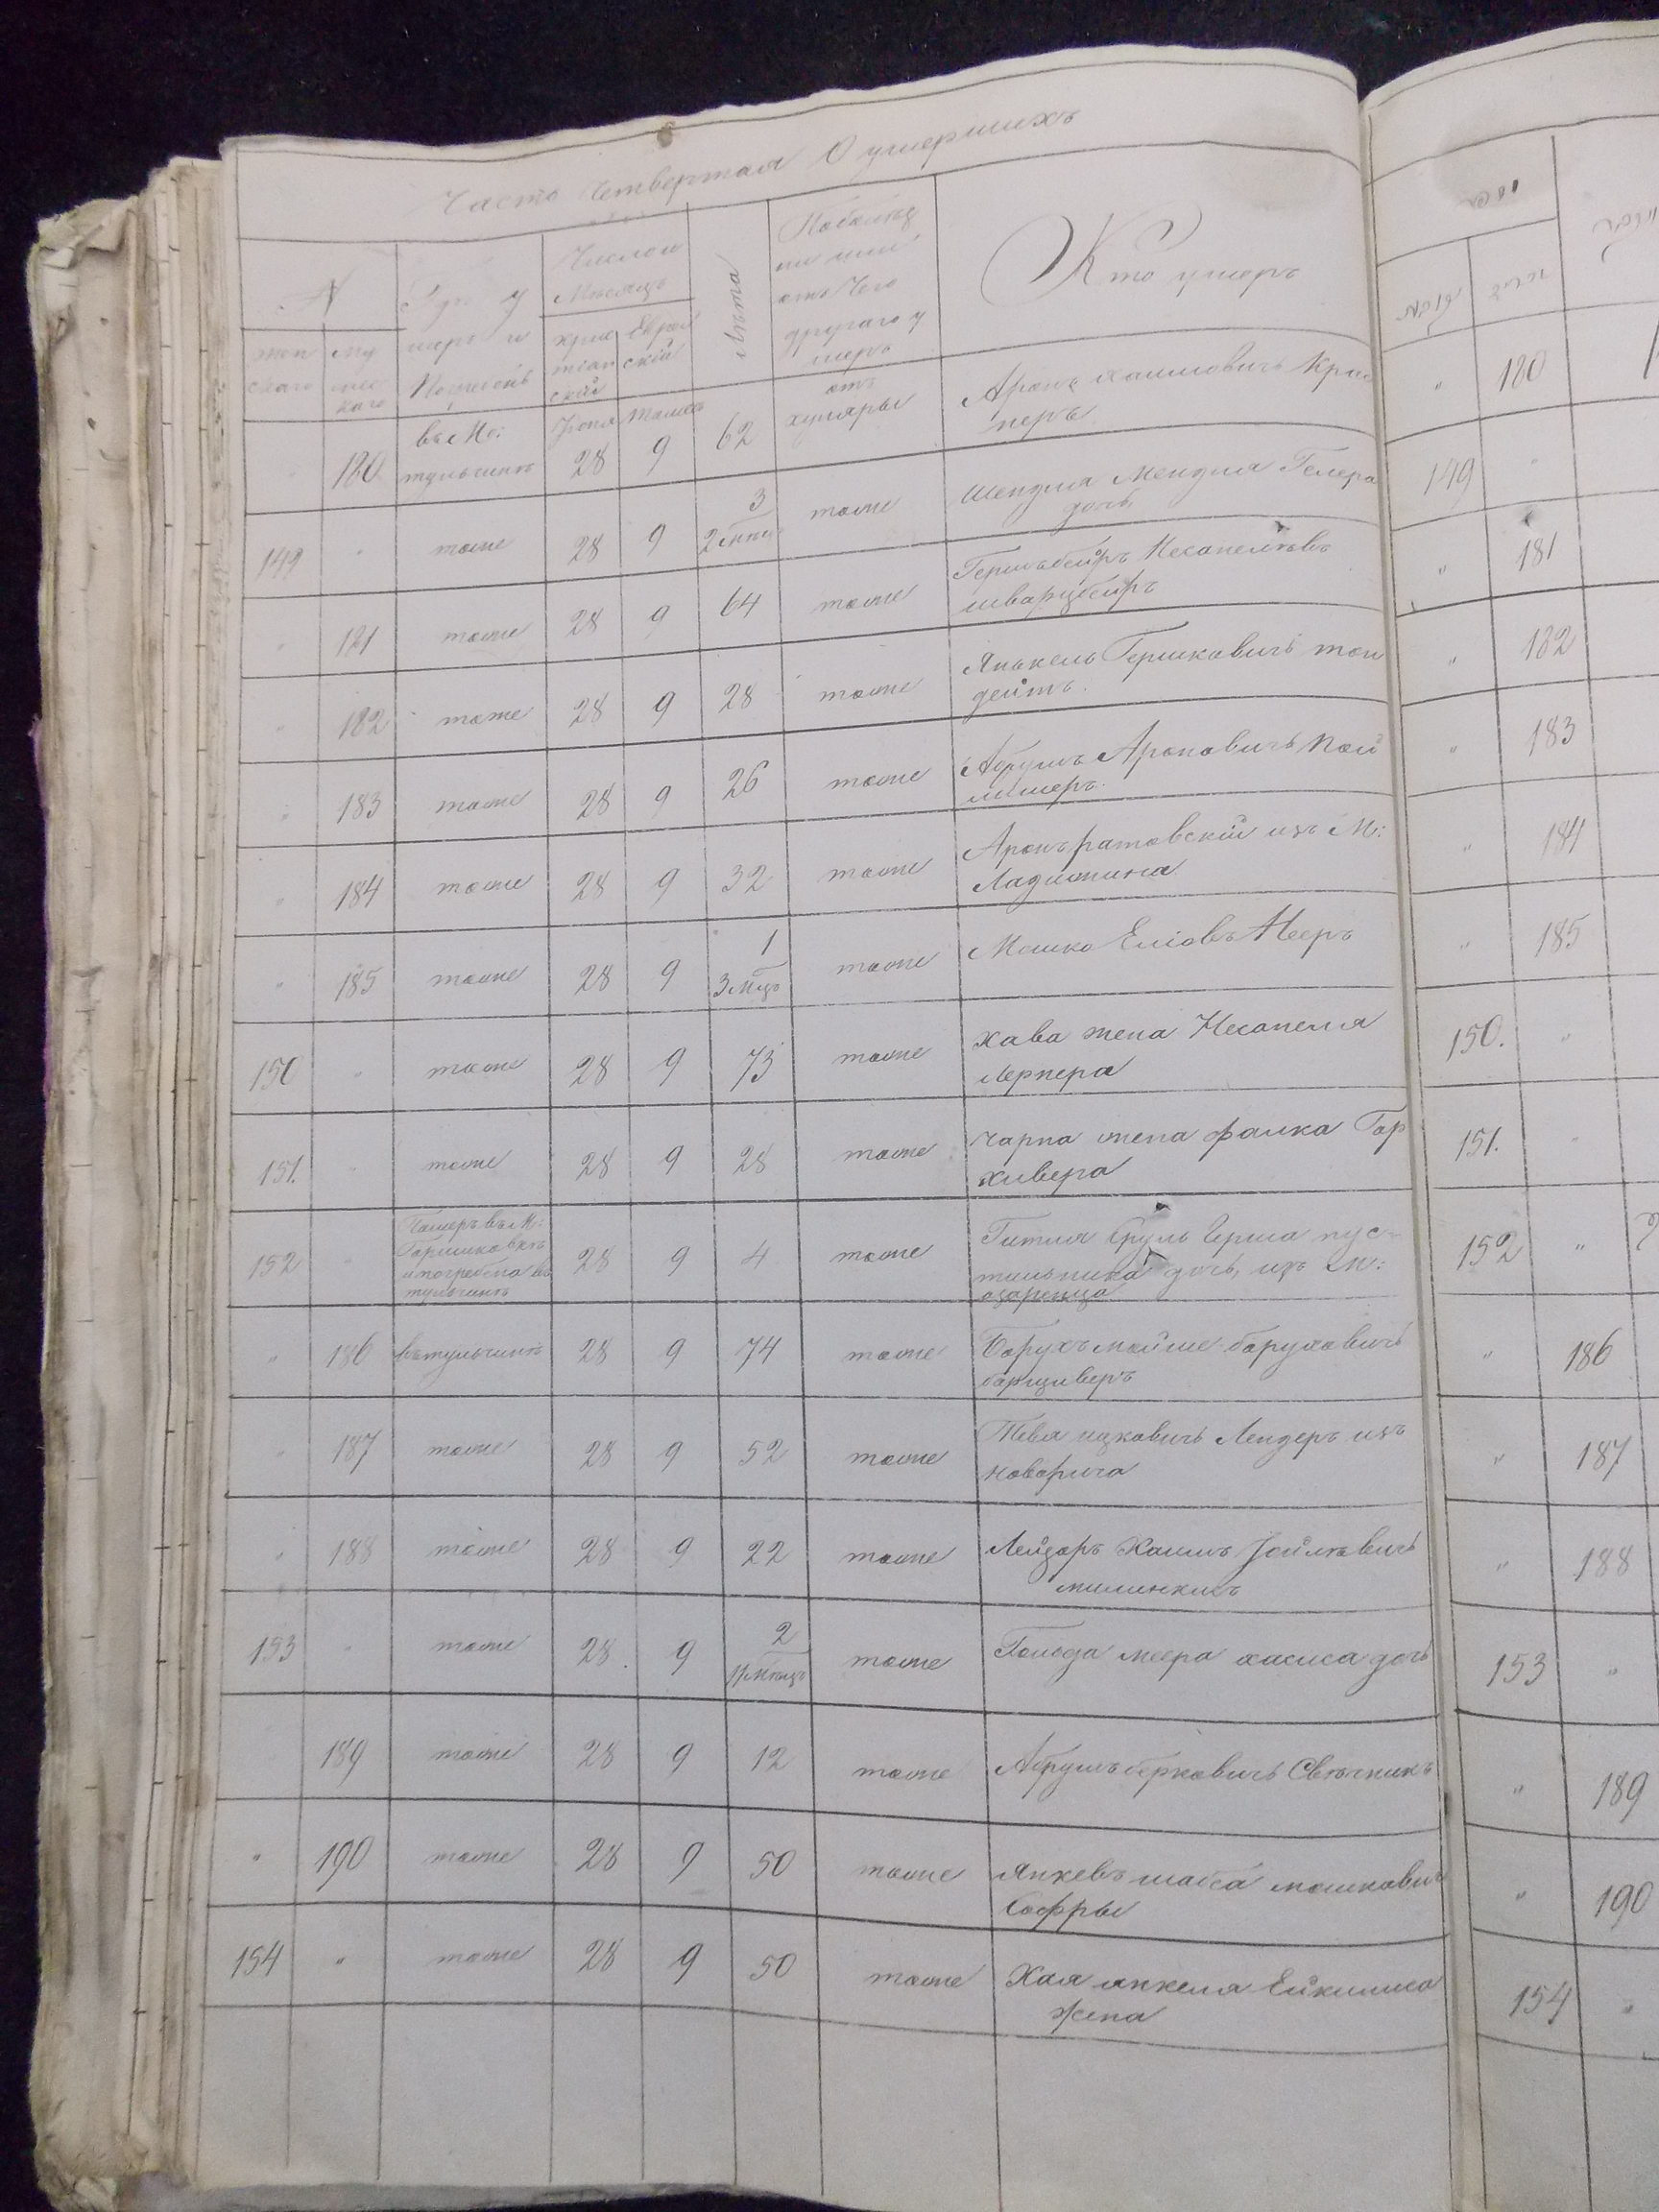 Часть Четвертая О умершихъ
№
жен
скаго
му
жес
каго
Гдѣ у
меръ и
Погребенъ
Число и
Мѣсяцъ
хрис
тіан
скій
Еврей
скій
Лѣта
отъ Чего
другаго у
меръ
Кто умеръ
180
въ М:
тульчинѣ
Іюня
28
9
62
отъ
холяры
Аронъ Хаимовичъ Крас
неръ
149 " тоже 28 9 3
2 тоже
Шендля Мендля Гелера
дочь
" 181 тоже 28 9 64 тоже
Гершъ беиръ Несанелѣвъ
шварцбеиръ
" 182 тоже 28 9 28 тоже
Янькель Гершковичъ тон
дейтъ.
" 183 тоже 28 9 26 тоже
Абрумъ Ароновичъ Пой
лишеръ.
" 184 тоже 28 9 32 тоже
Аронъ ратовскій изъ М:
Ладижина
" 185 тоже 28 9 1
3 Мцъ тоже
Мошко Еліовъ Мееръ
150 " тоже 28 9 73 тоже
Хава жена Несанеля
Лернера
151. " тоже 28 9 28 тоже
Чарна жена фалка Гор
хивера
152 "
въ М:
и погребена въ
тульчинѣ
28 9 4 тоже
Гитля Сруль Герша пус-
тильника дочь, изъ М:
озаренца
" 186 въ тульчинѣ 28 9 74 тоже
Борухъ мойше боруховичъ
борщиверъ
" 187 тоже 28 9 52 тоже
Тевя ицковичъ Лендеръ изъ
" 188 тоже 28 9 22 тоже
Лейзоръ Хаимъ Іойлевичъ
153 " тоже 28. 9 2
11 Мѣсцъ тоже
Голода меера хасиса дочь
189 тоже 28 9 12 тоже
Абрумъ берковичъ Свѣчникъ
" 190 тоже 28 9 50 тоже
Янкевъ шабса мошкович
Софры
154 " тоже 28 9 50 тоже
Хая янкеля Ейкилиса
жена
" 180
149 "
" 181
" 182
" 183
" 184
" 185
150. "
151. "
152 "
" 186
" 187
" 188
153 "
" 189
" 190
154 "